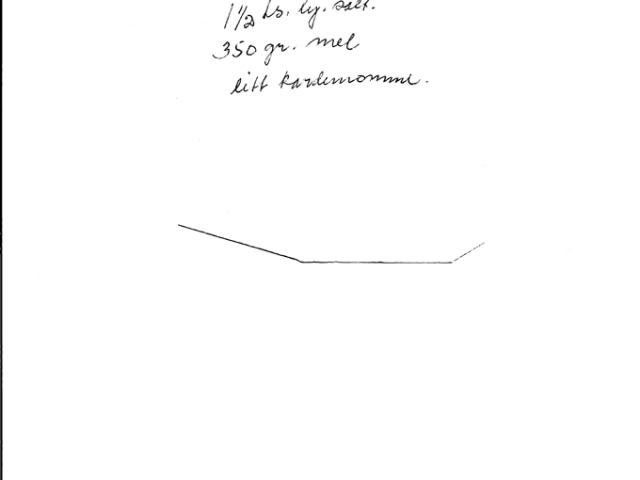 1½ ts. hj. salt.
350 gr. mel
litt kardemomme.